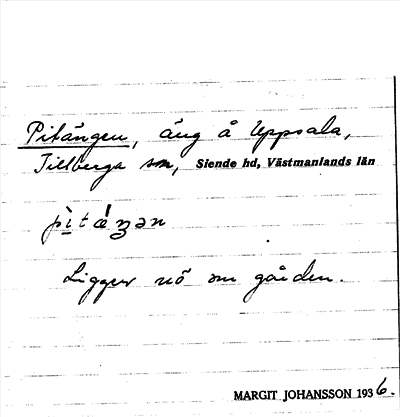 Pitängen, äng å Uppsala,
Tillberga sn, Siende hd, Västmanlands län
pìtǽŋən
Ligger nö om gården.
MARGIT JOHANSSON 1936.